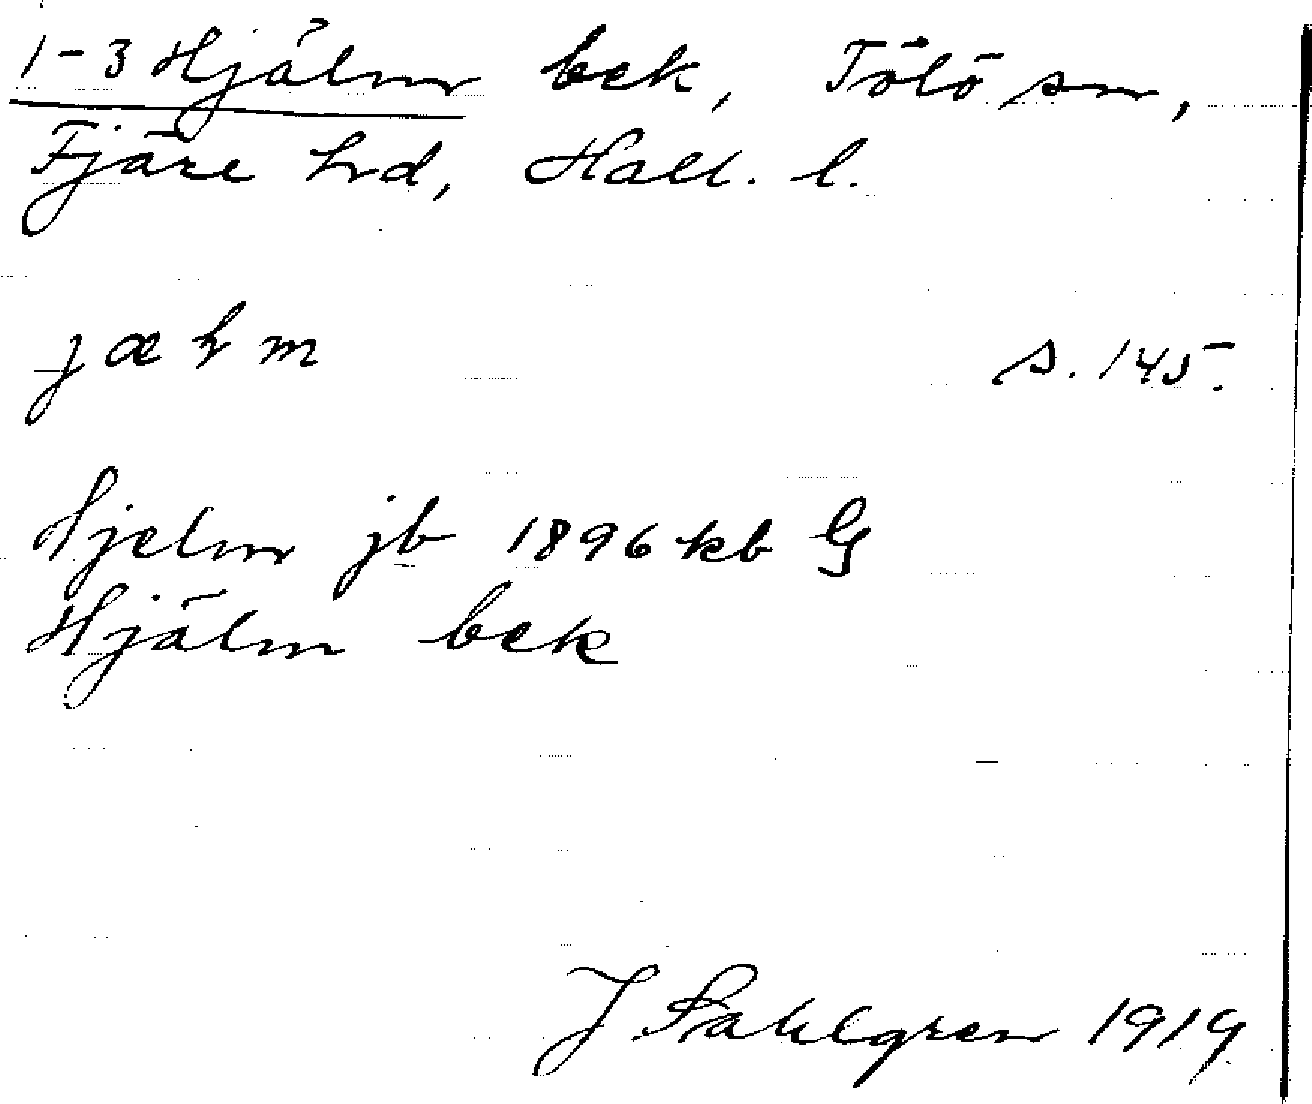 1-3 Hjälm bek, Tölö sn,
Fjäre hd, Hall. l.
jæłm s. 145.
Hjelm jb 1896 kb G
Hjälm bek
J Sahlgren 1919